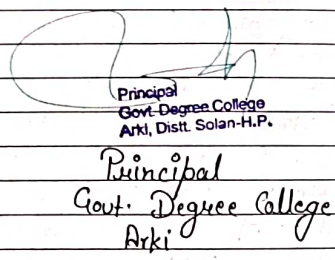 Principal
Govt. Degree College
Arki, Distt. Solan-H.P.
Principal
Gout. Degree College
Arki